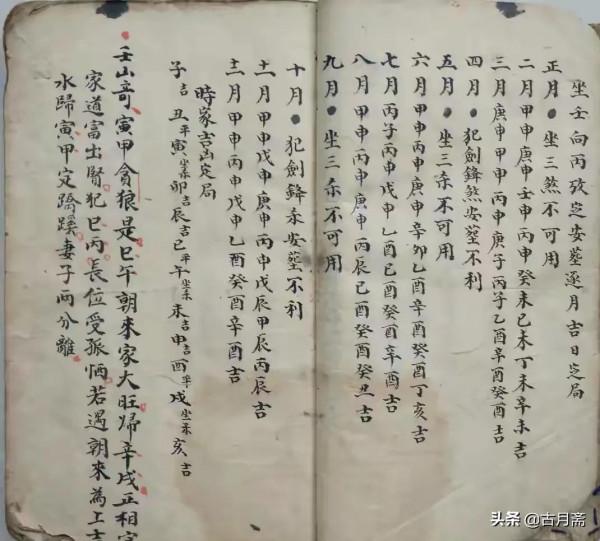 坐壬向丙改定安葬逐月吉日定局
正月●坐三煞不可用
二月甲申庚申壬申丙申癸未己未丁未辛未吉
三月庚申甲申丙申庚子丙子乙酉辛酉癸酉吉
四月●犯劍鋒煞安葬不利
五月●坐三杀不可用
六月甲申丙申庚申辛卯乙酉辛酉癸酉丁亥吉
七月丙子丙申戊申乙酉己酉癸酉辛酉吉
八月甲申丙申庚申丙辰己酉癸酉癸丑吉
九月●坐三杀不可用
十月●犯劍鋒杀安葬不利
十一月甲申戊申庚申丙申戊辰甲辰丙辰吉
十二月甲申丙申戊申乙酉癸酉辛酉吉
時家吉凶定局
子吉丑平寅坐杀卯吉辰吉巳平午坐杀未吉申吉酉平戌坐杀亥吉
壬山奇寅甲貪狼是巳午朝來家大旺歸辛戌正相
家道富出賢犯巳丙長位受孤恓若遇朝來為上
水歸寅甲定蹊蹺妻子兩分離
头条 @古月斋